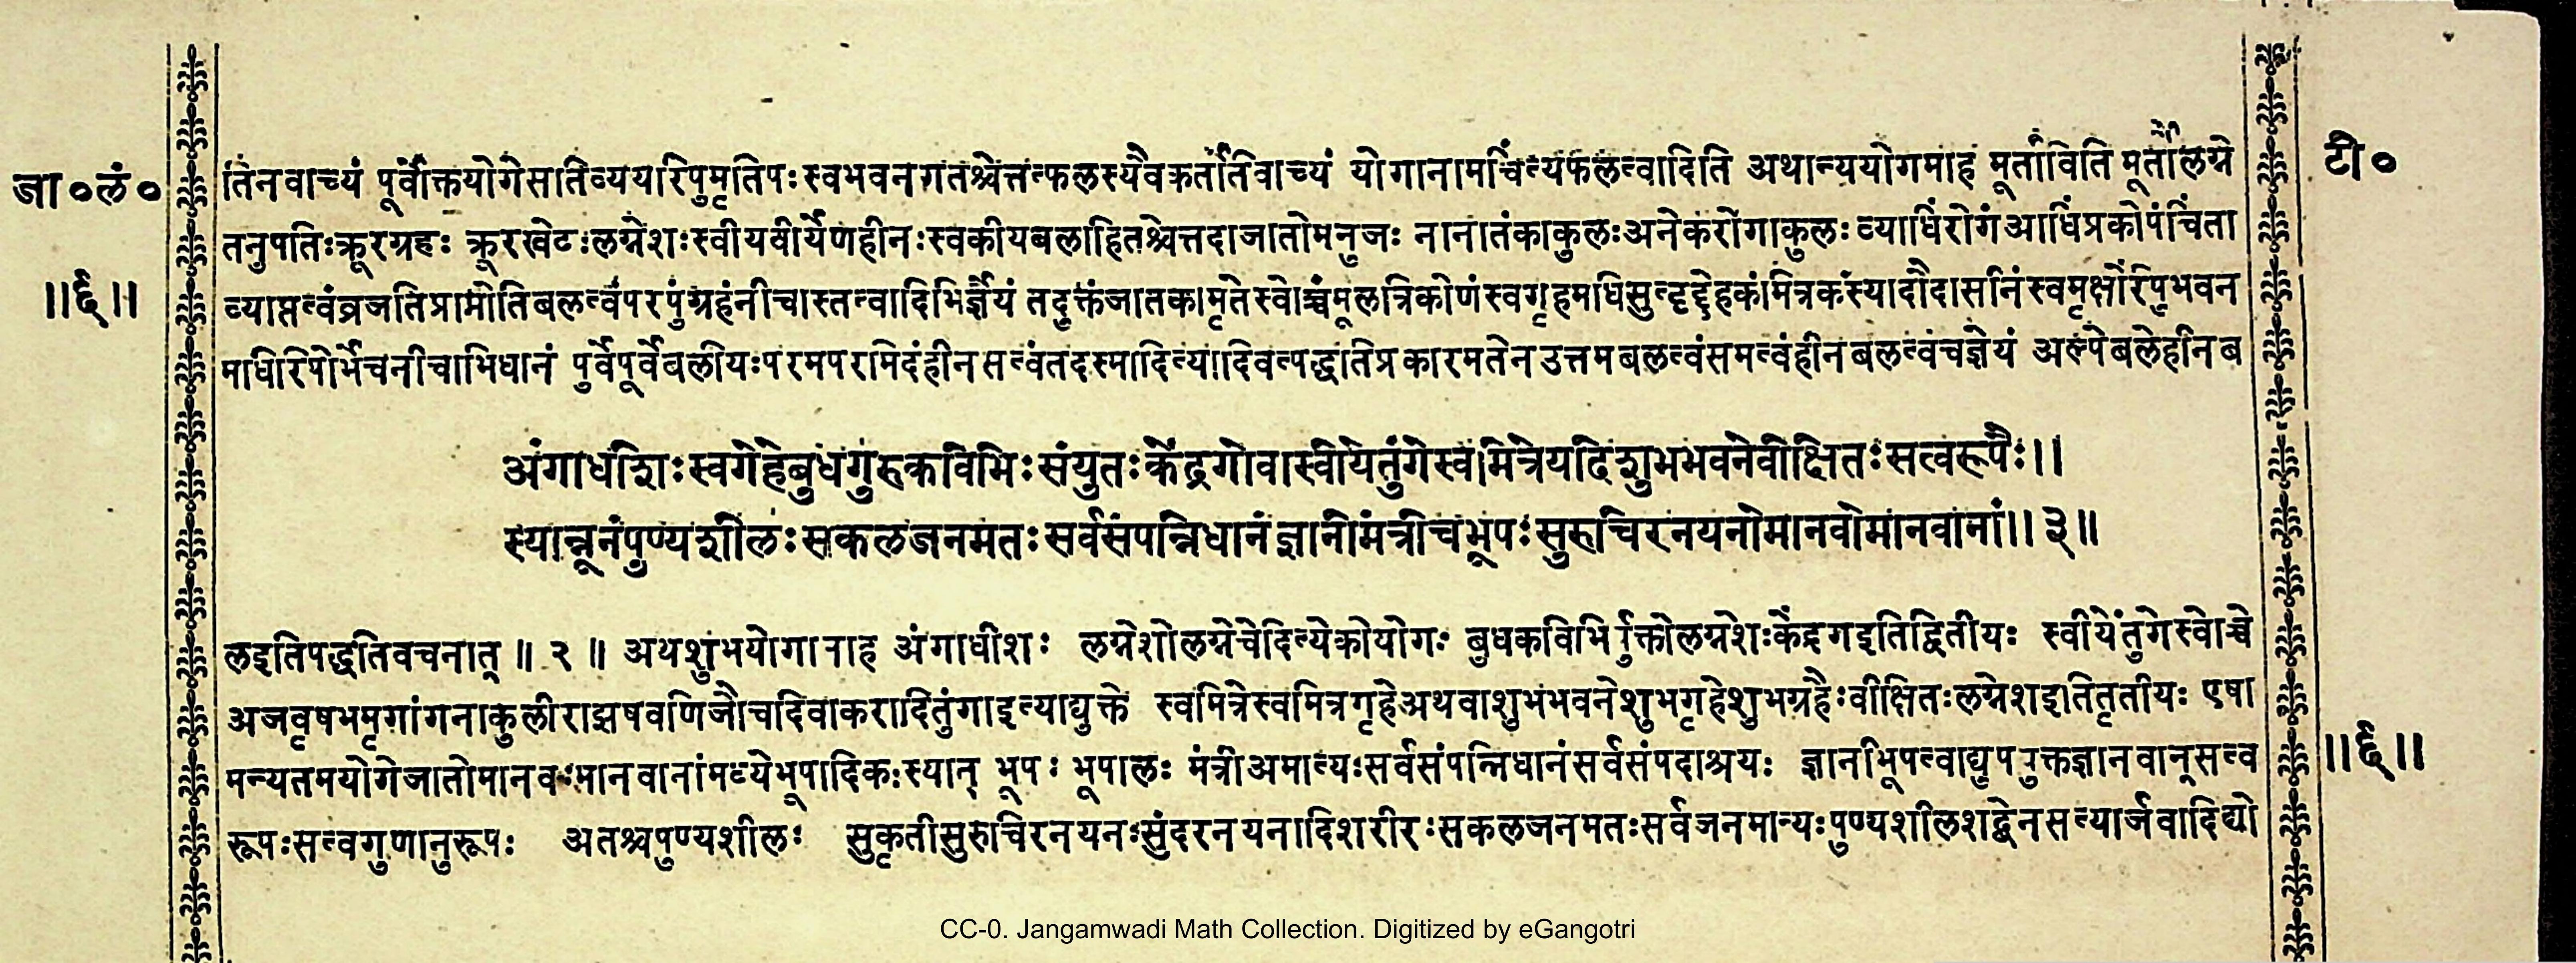 जा०लं०
॥६॥
तिनवाच्यं पूर्वोक्तयोगेसतिव्ययरिपुमृतिपःस्वभवनगतश्चेत्तत्फलस्यैवकर्तेतिवाच्यं योगानामचिंत्यफलत्वादिति अथान्ययोगमाह मूर्ताविति मूर्तौलग्ने
टी०
तनुपतिःक्रूरग्रहः क्रूरखेटःलग्नेशःस्वीयवीर्येणहीनःस्वकीयबलाहितश्चेत्तदाजातोमनुजः नानातंकाकुलःअनेकरोगाकुलः व्याधिंरोगंआधिंप्रकोपंचिंता
व्याप्तत्वंव्रजतिप्राप्नोतिबलत्वंपरपुंग्रहंनीचास्तत्वादिभिर्ज्ञेयं तदुक्तंजातकामृतेस्वोच्चंमूलत्रिकोणंस्वगृहमधिसुहृद्देहकंमित्रकंस्यादौदासनिंस्वमृक्षंरिपुभवन
माधिरिपोर्भंचनीचाभिधानं पुर्वेपूर्वेबलीयःपरमपरमिदंहीनसत्वंतदस्मादित्यादिवत्पद्धतिप्रकारमतेन उत्तमबलत्वंसमत्वंहीनबलत्वंचज्ञेयं अल्पेबलेहीनब
अंगाधीशःस्वगेहेबुधगुरुकविभिःसंयुतःकेंद्रगोवास्वीयेतुंगेस्वमित्रेयदिशुभभवनेवीक्षितःसत्वरूपैः॥
स्यान्नूनंपुण्यशीलःसकलजनमतःसर्वसंपन्निधानंज्ञानीमंत्रीचभूपःसुरुचिरनयनोमानवोमानवानां॥३॥
लइतिपद्धतिवचनात् ॥२॥ अथशुभयोगानाह अंगाधीशः लग्नेशोलग्नेचेदित्येकोयोगः बुधकविभिर्युक्तोलग्नेशःकेंद्रगइतिद्वितीयः स्वीयेतुंगेस्वोच्चे
अजवृषभमृगांगनाकुलीराझषवणिजौचदिवाकरादितुंगाइत्याद्युक्ते स्वमित्रेस्वमित्रगृहेअथवाशुभभवनेशुभगृहेशुभग्रहैःवीक्षितःलग्नेशइतितृतीयः एषा
मन्यतमयोगेजातोमानवःमानवानांमध्येभूपादिकःस्यात् भूपः भूपालः मंत्रीअमात्यःसर्वसंपन्निधानंसर्वसंपदाश्रयः ज्ञानीभूपत्वाद्युपयुक्तज्ञानवान्सत्व
॥६॥
रूपःसत्वगुणानुरूपः अतश्चपुण्यशीलः सुकृतीसुरुचिरनयनःसुंदरनयनादिशरीरःसकलजनमतःसर्वजनमान्यःपुण्यशीलशद्बेनसत्यार्जवादिद्यो
CC-0. Jangamwadi Math Collection. Digitized by eGangotri